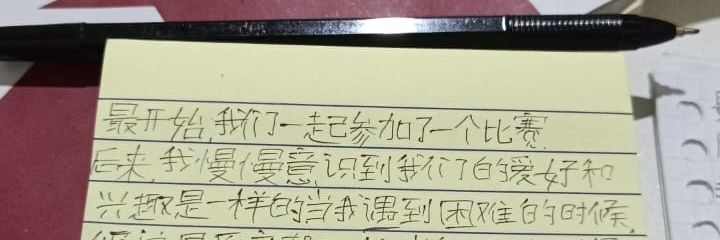 最开始,我们一起参加了一个比赛
后来,我慢慢意识到我们了的爱好和
兴趣是一样的当我遇到困难的时候,